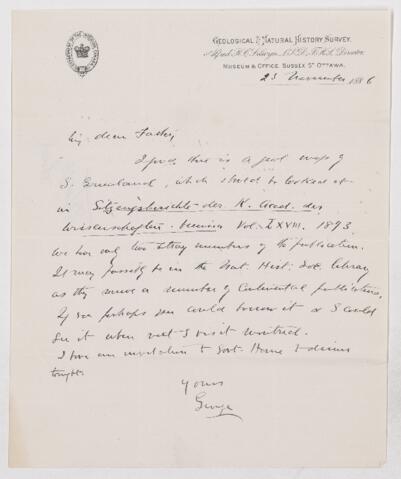 GEOLOGICAL & NATURAL HISTORY SURVEY.
Alfred R. C. Selwyn, L.L.D., F.R.S., Director.
MUSEUM & OFFICE, SUSSEX ST OTTAWA.
23 November 1886
My dear Father,
I find there is a good map of
S. Greenland, which should be looked at
in Sitzungsberichte der K. Acad. der
Wissenschaften Vol. LXVIII. 1873
We have only two stray numbers of the publication.
It may possibly be in the Nat. Hist. Soc. library
as they receive a number of Continental publications,
If so perhaps you could borrow it & I could
see it when next I visit Montreal.
I have an invitation to Govt. House to dinner
tonight.
Yours
George